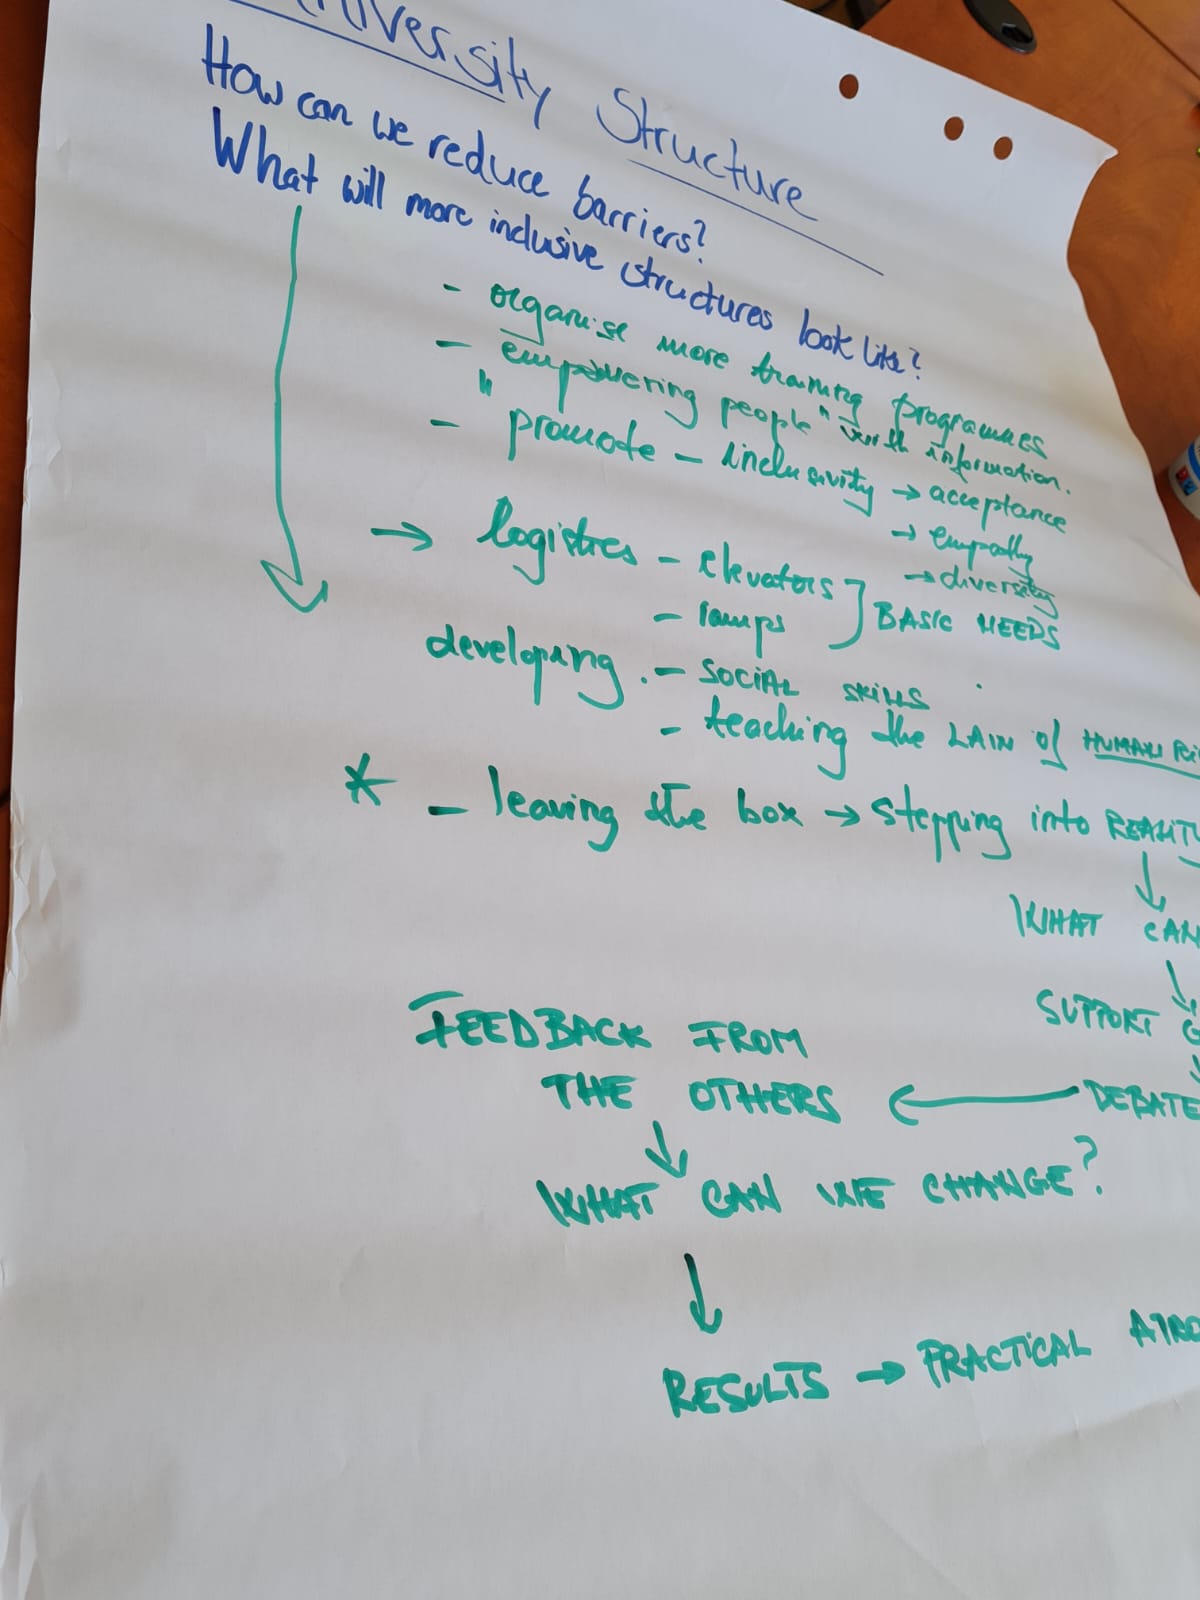 University Structure
How can we reduce barriers?
What will more inclusive structures look like?
- organise more training programmes
- "empowering people" with information.
- promote - inclusivity → acceptance
→ empathy
→ diversity
→ logistics - elevators
- ramps } BASIC NEEDS
developing - SOCIAL SKILLS
- teaching the LAW of HUMAN
* - leaving the box → stepping into REALITY
↓
WHAT CAN
↓
SUPPORT
↓
DEBATE
←
FEEDBACK FROM
THE OTHERS
↓
WHAT CAN WE CHANGE?
↓
RESULTS → PRACTICAL